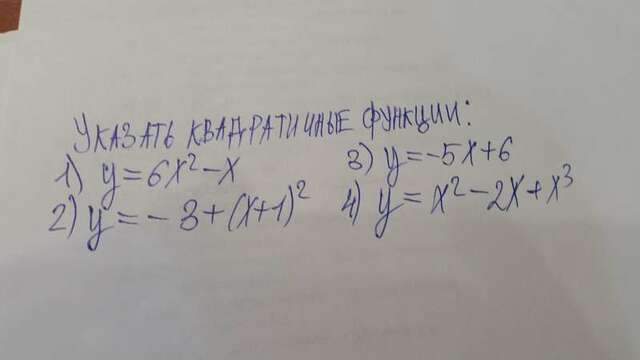 УКАЗАТЬ КВАДРАТИЧНЫЕ ФУНКЦИИ:
1) y = 6x² - x 3) y = -5x + 6
2) y = - 3 + (x+1)² 4) y = x² - 2x + x³